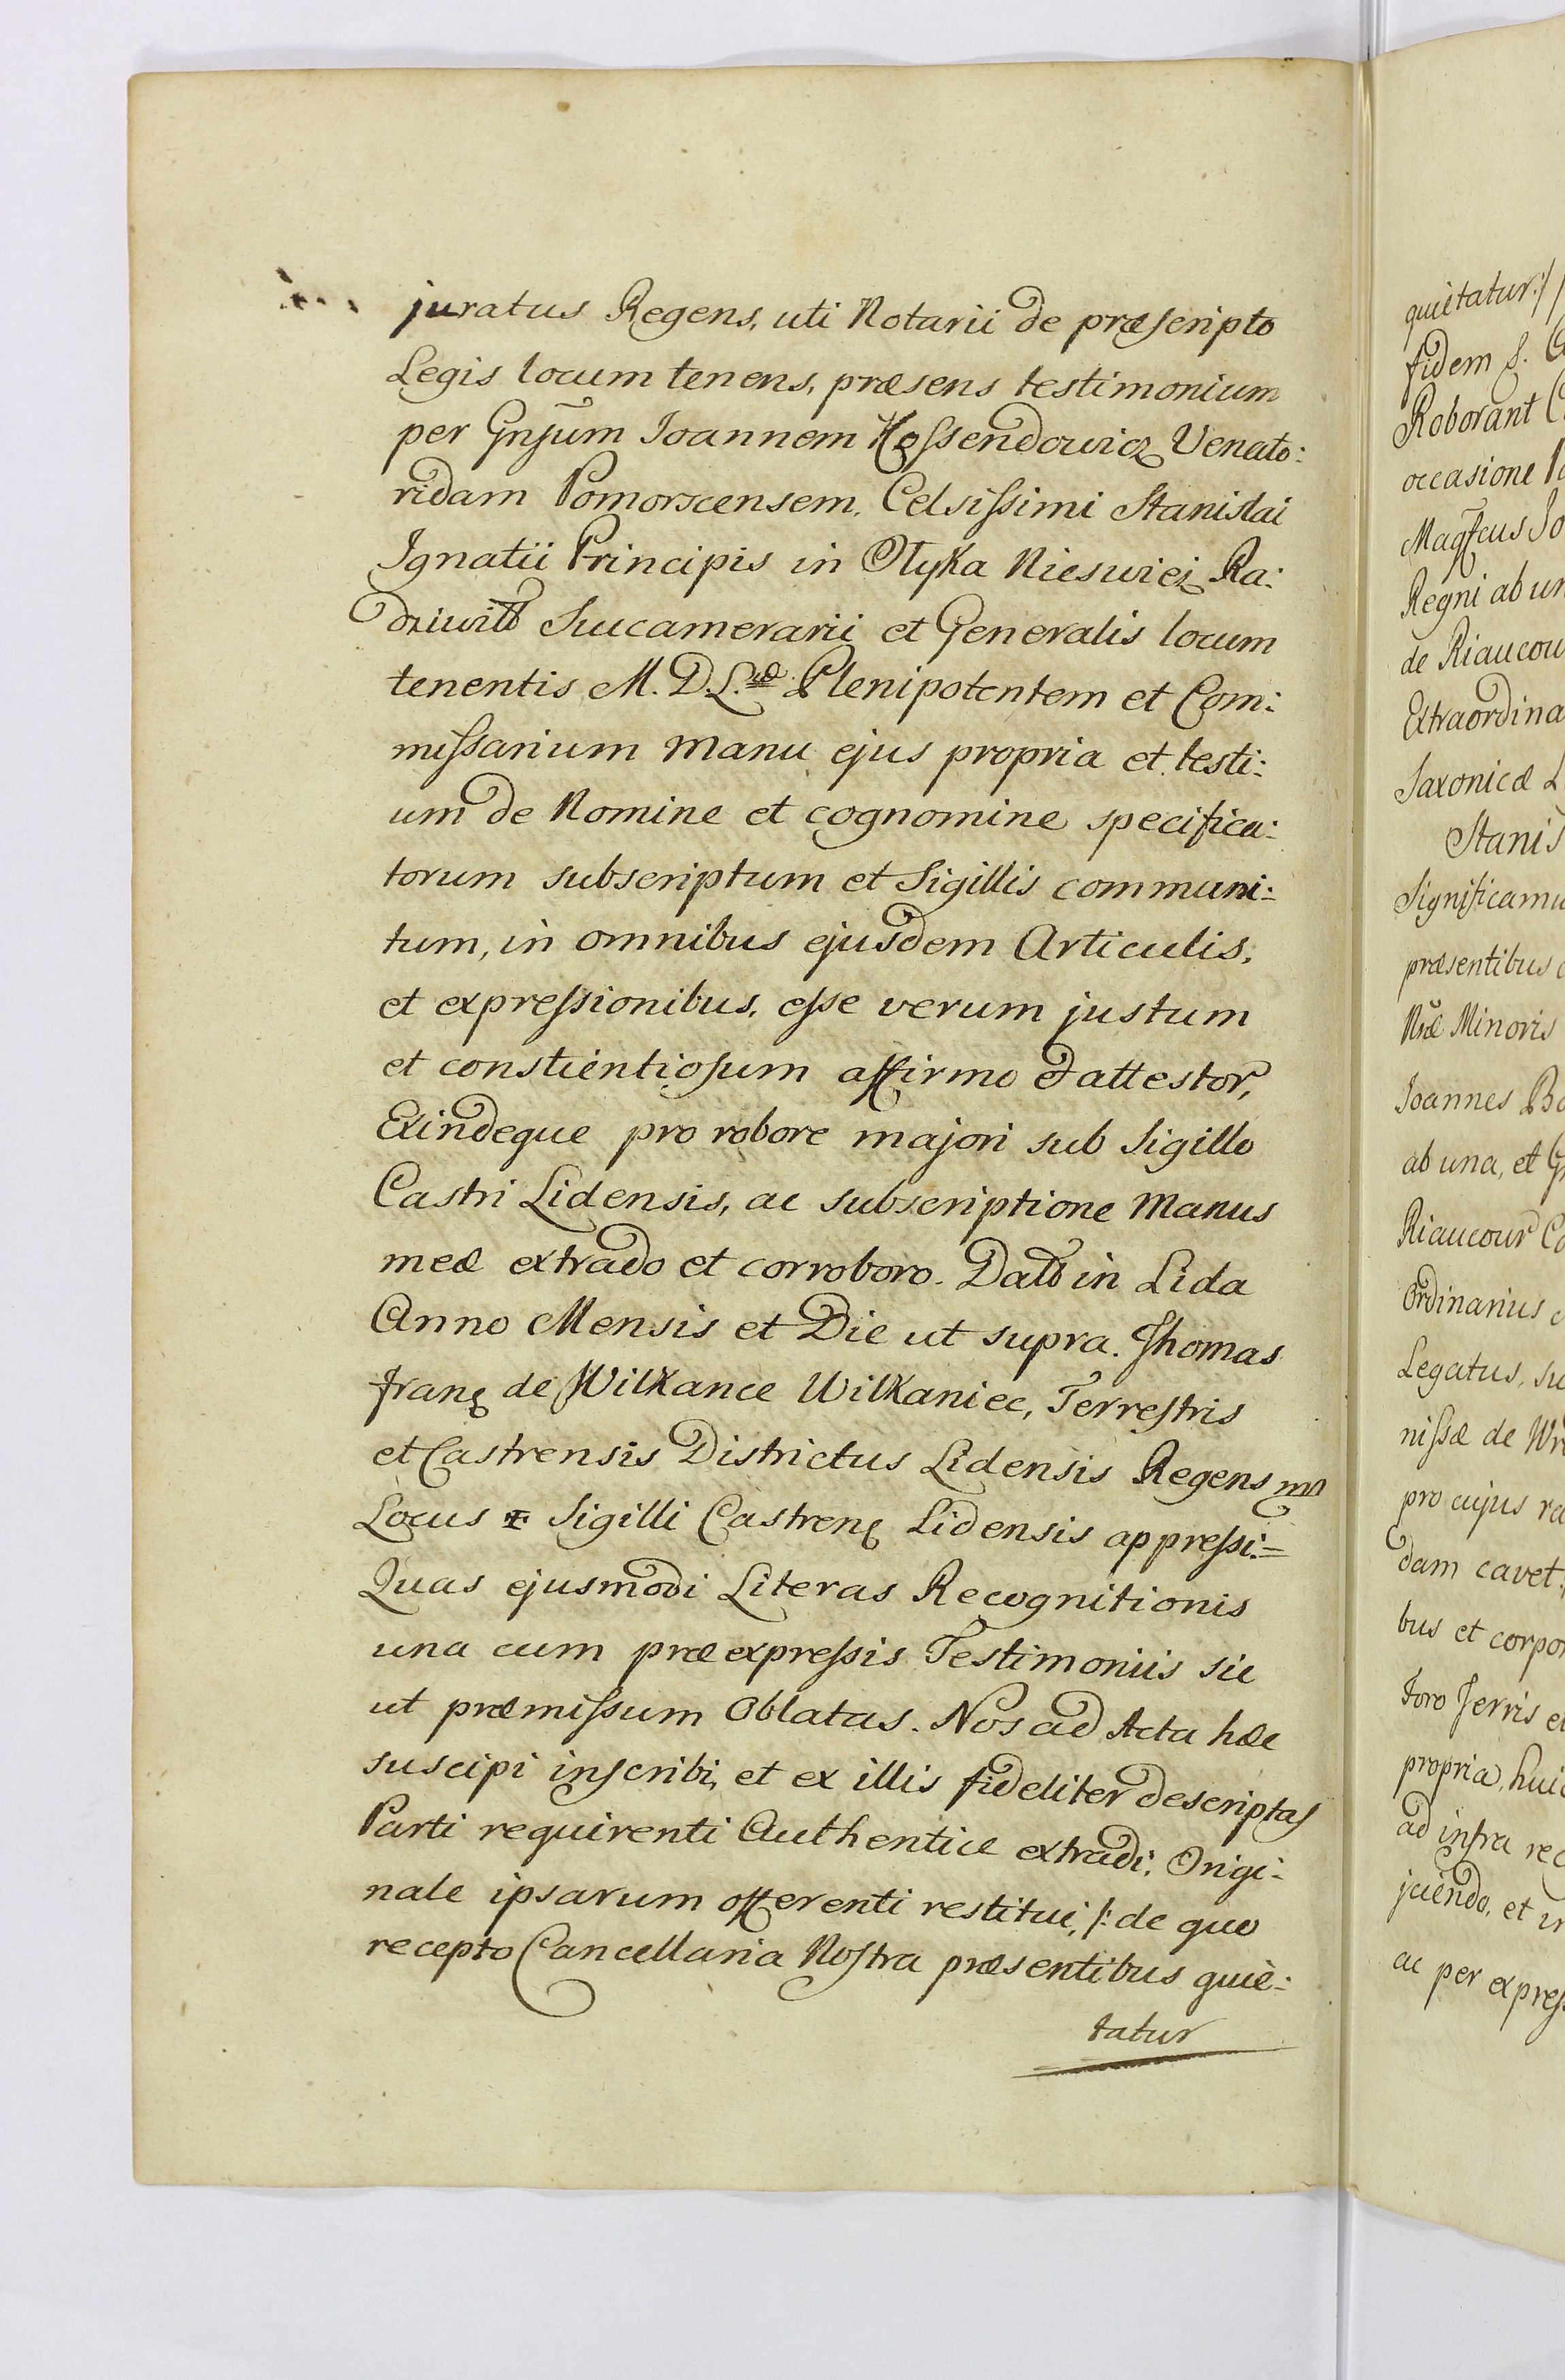 juratus Regens, uti Notarii de præscripto
Legis locum tenens, præsens testimonium
per Gnsum Joannem Hossendowicz Venato:
ridam Pomorscensem, Celsissimi Stanislai
Ignatii Principis in Olyka Nieswiez Ra:
dziwill Succamerarii et Generalis locum
tenentis M. D. L. Plenipotentem et Com:
missarium manu ejus propria et testi:
um de Nomine et cognomine specifica:
torum subscriptum et Sigillis communi:
tum, in omnibus ejusdem Articulis,
et expressionibus, esse verum justum
et constientiosum affirmo & attestor,
Exindeque pro robore majori sub Sigillo
Castri Lidensis, ac subscriptione Manus
meæ extrado et corroboro. Datt in Lida
Anno Mensis et Die ut supra. Thomas
Franc de Wilkance Wilkaniec, Terrestris
et Castrensis Districtus Lidensis Regens mp
Locus Sigilli Castren Lidensis appressi.=
Quas ejusmodi Literas Recognitionis
una cum præexpressis Testimoniis sic
ut præmissum Oblatas. Nos ad Acta hæc
suscipi inscribi, et ex illis fideliter descriptas
Parti requirenti Authentice extradi, Origi:
nale ipsarum offerenti restitui, /: de quo
recepto Cancellaria Nostra præsentibus quie:
tatur
quietatur :/
fidem S.
Roborant
occasione
Magfcus Jo
Regni ab un
de Riaucou
Extraordina
Saxonicæ L
Stanis
Significamu
præsentibus
Nræ Minoris
Joannes Bo
ab una, et G
Riaucour Co
Ordinarius
Legatus, su
nissæ de Wr
pro cujus ra
dam cavet,
bus et corpor
foro Terris e
propria, huic
ad infra rec
jciendo, et in
ac per express